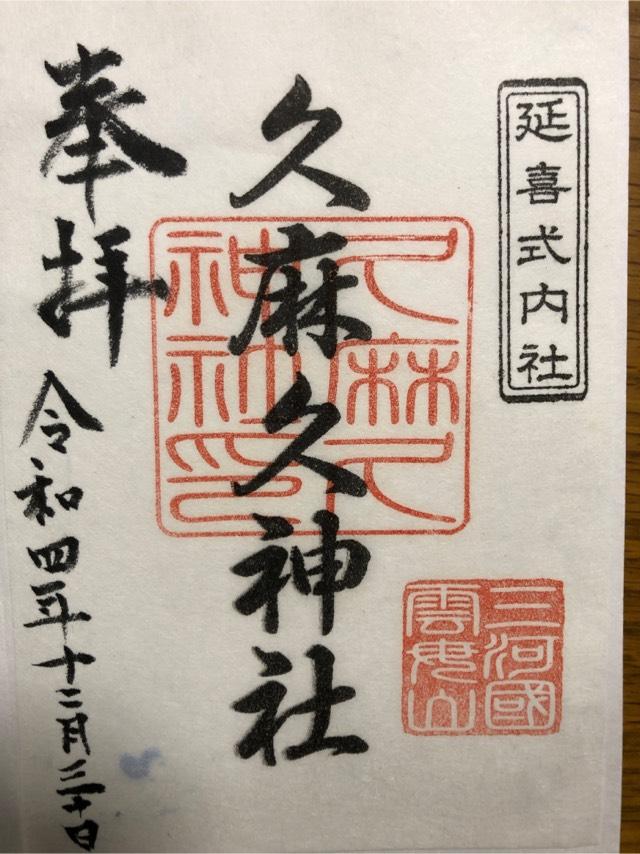 延喜式内社
久麻久神社
久麻久
神社印
三河國
雲母山
奉拝
令和四年十二月三十日